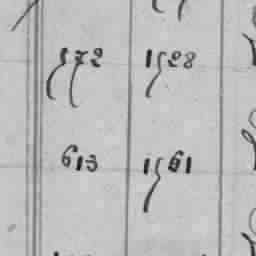 572 1528
613 1561